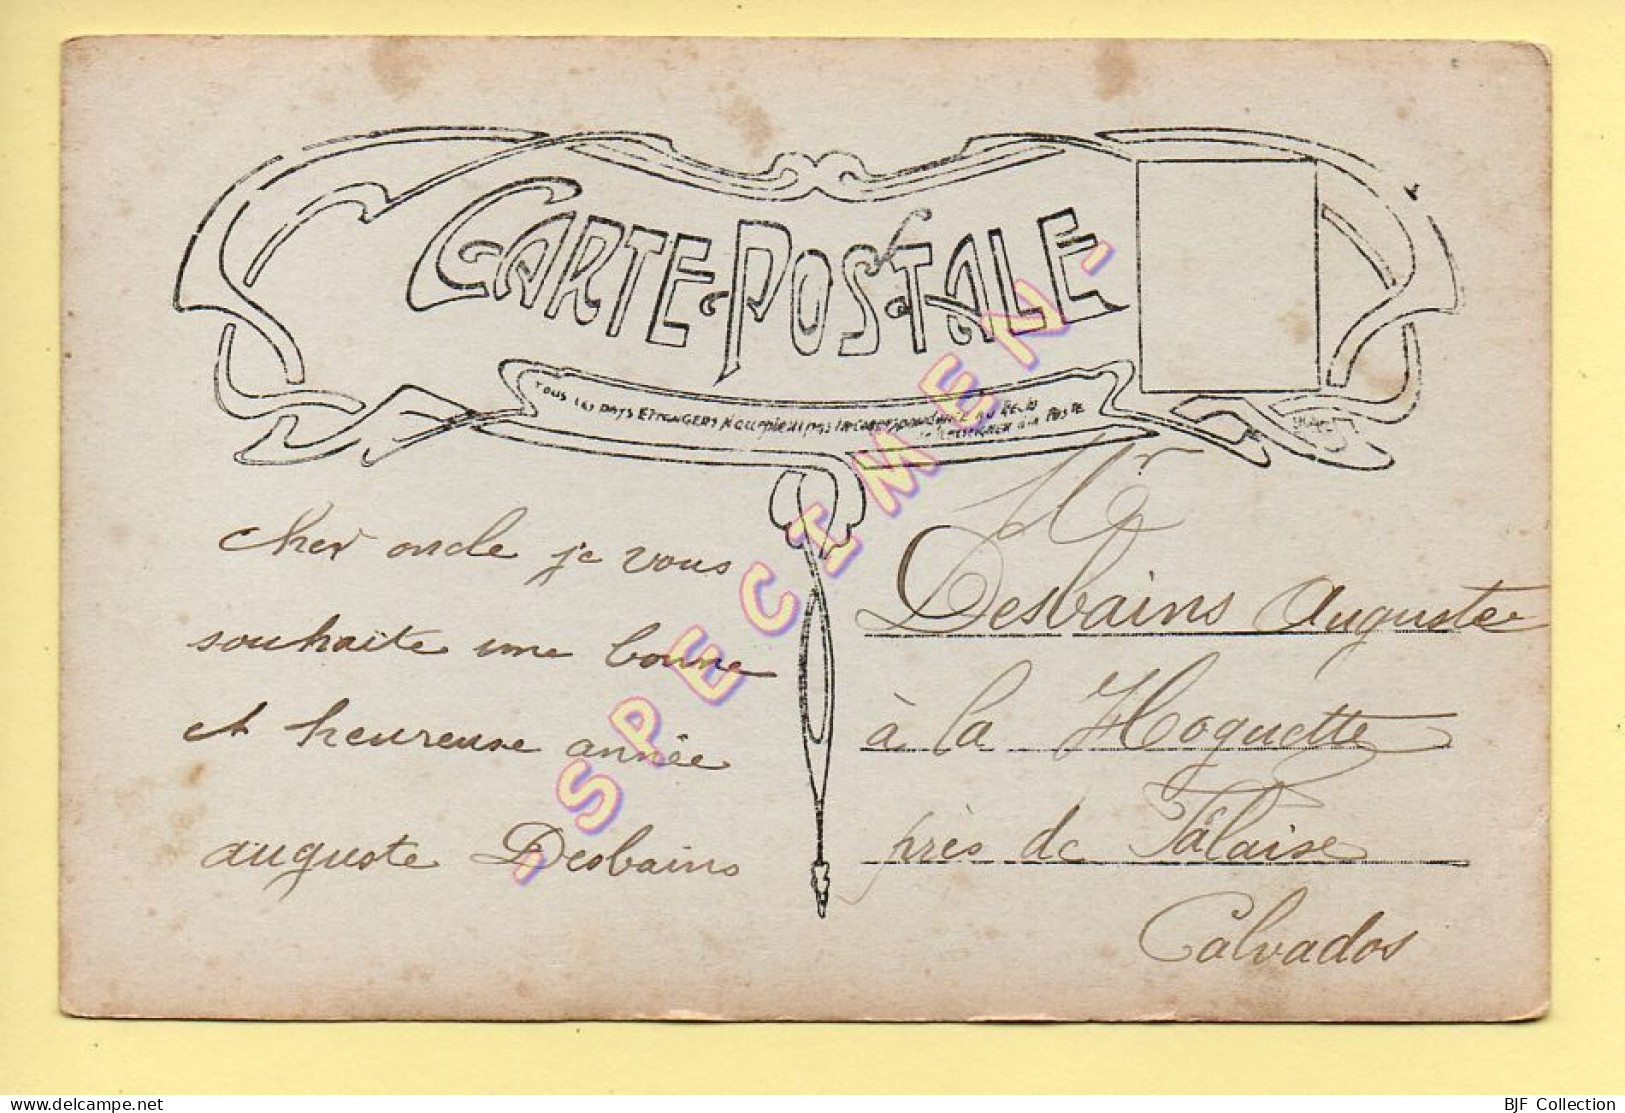 CARTE POSTALE
TOUS LES PAYS ETRANGERS N'acceptent pas la correspondance AU RECTO
SE RENSEIGNER A LA POSTE
cher oncle je vous
souhaite une bonne
et heureuse année
auguste Desbains
Mr
Desbains Auguste
à la Hoguette
près de Falaise
Calvados
- SPECIMEN -
delcampe.net
BJF Collection